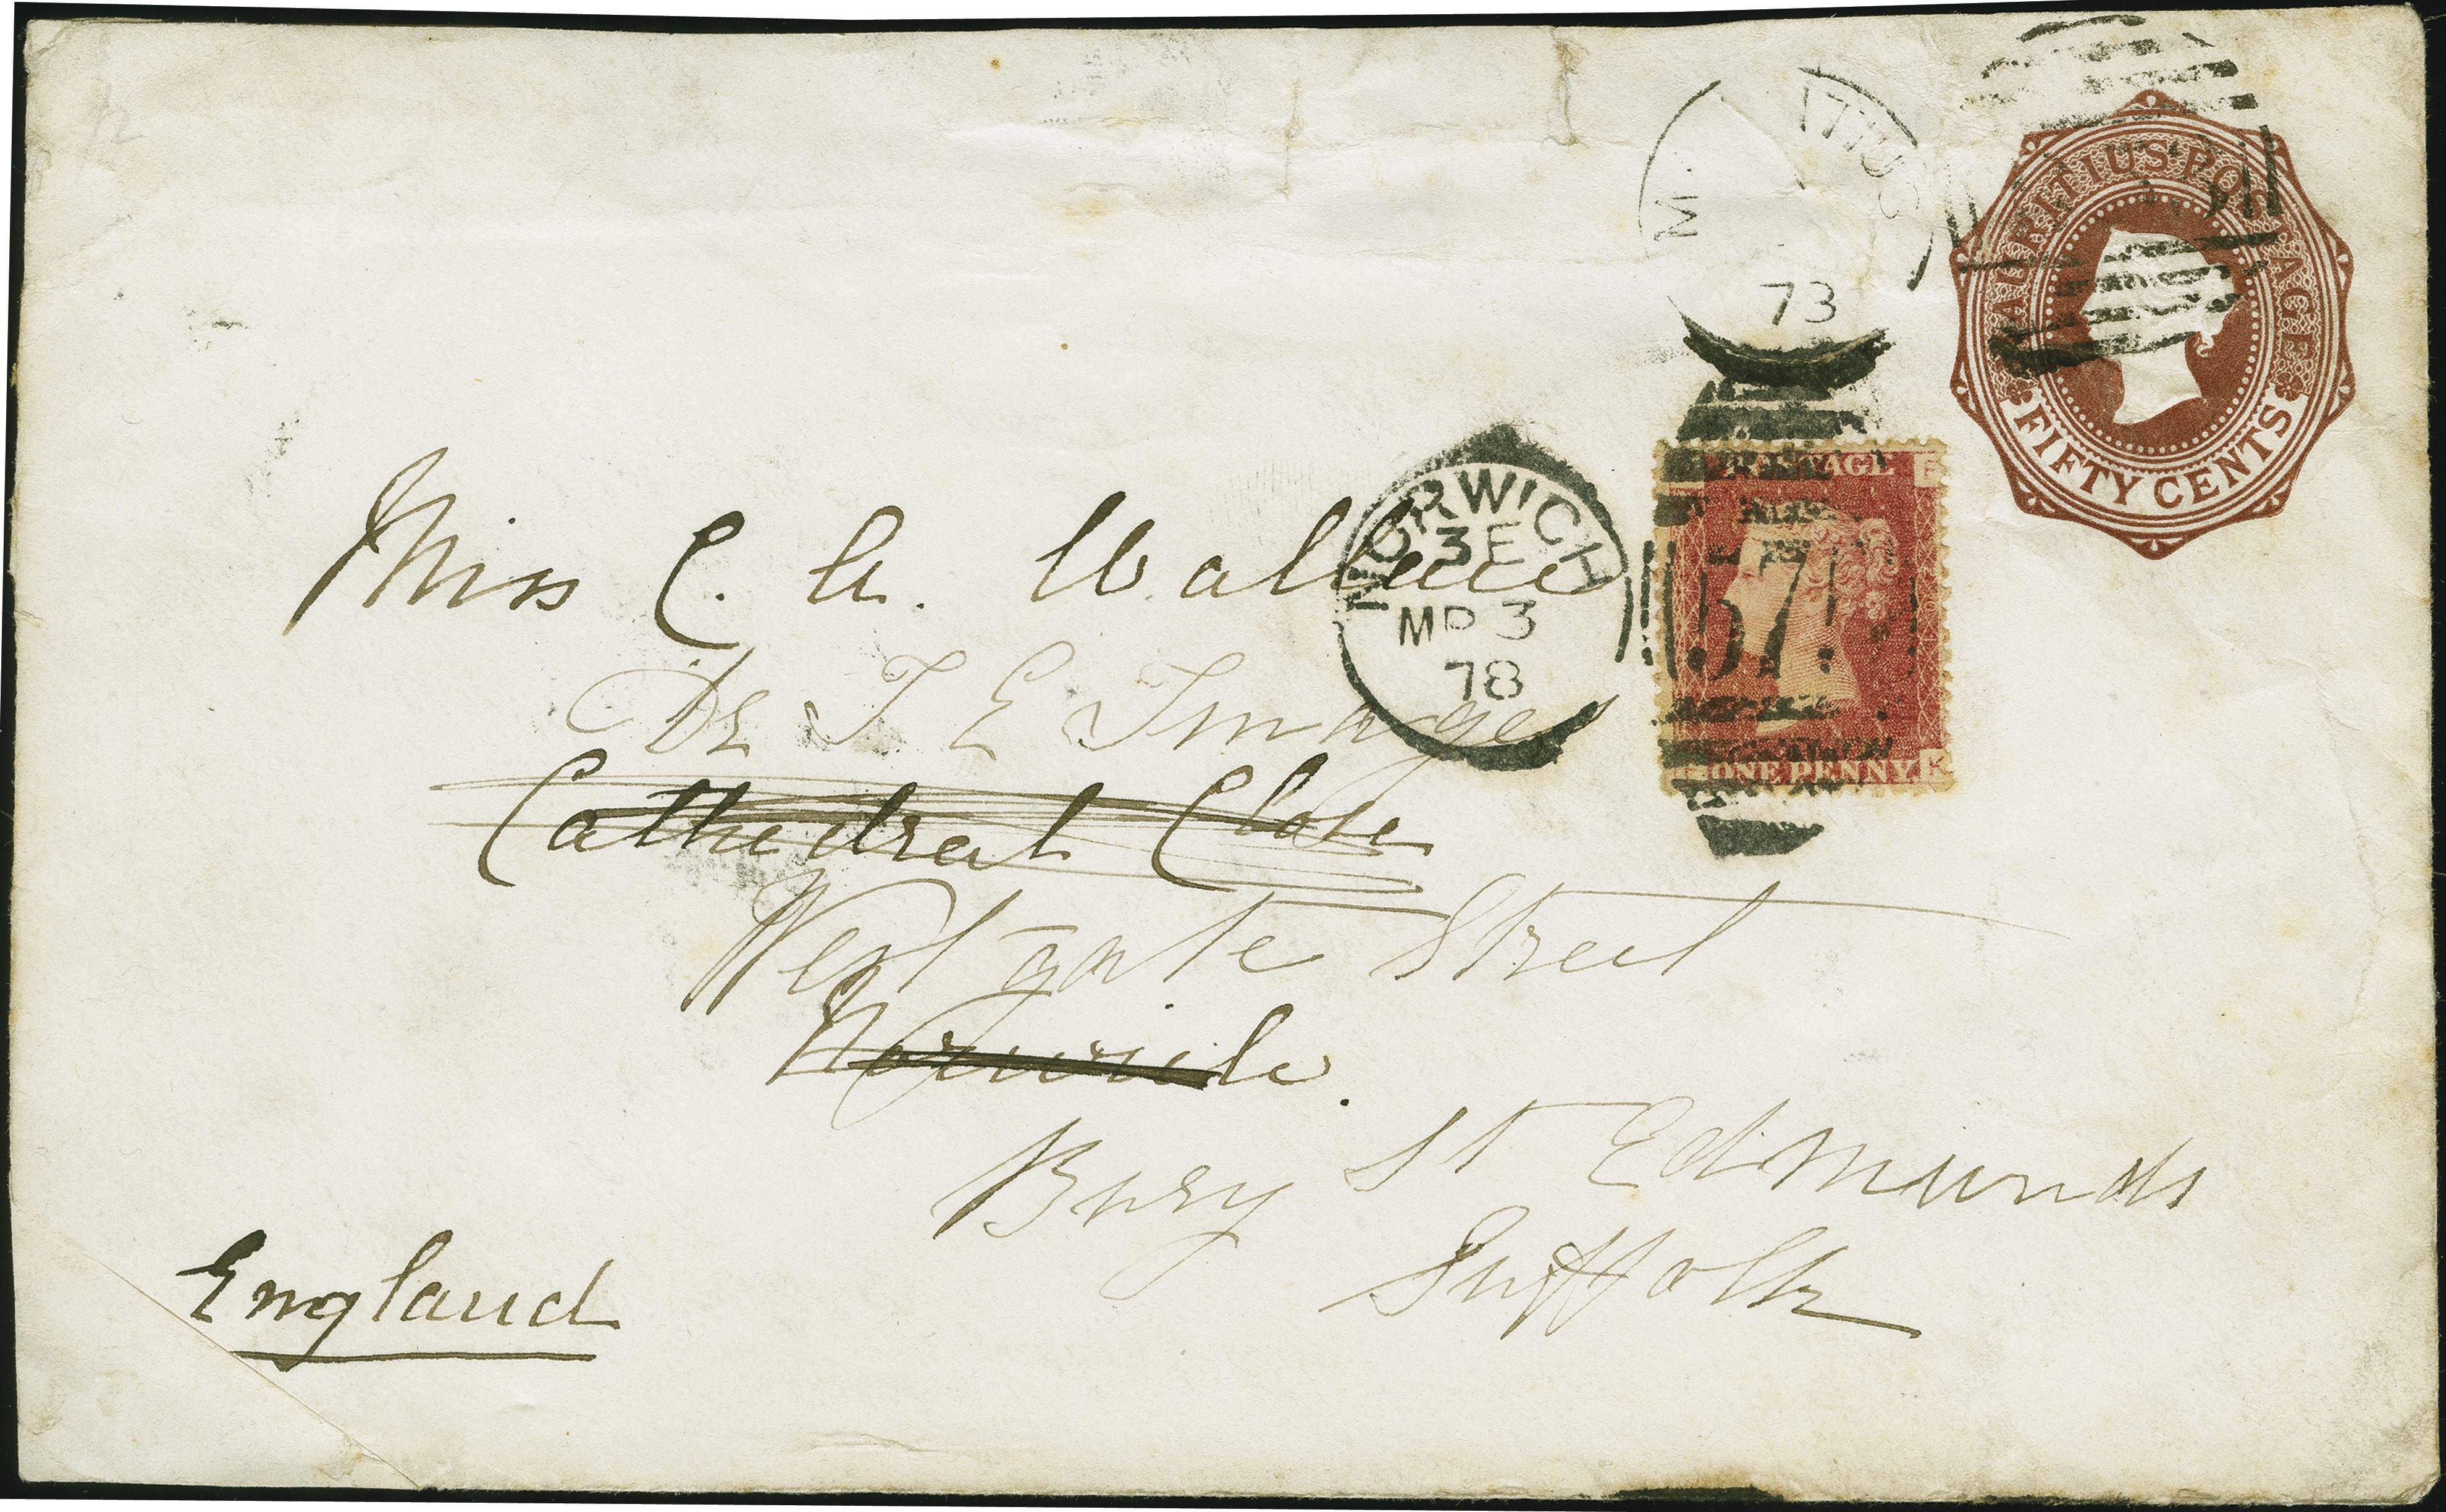 MAURITIUS POSTAGE
FIFTY CENTS
M ITIUS
73
NORWICH
3E
MR 3
78
POSTAGE
57
ONE PENNY
K
Miss C. A. Wallace
Dr T E Image
Cathedral Close
Westgate Street
Norwich.
Bury St Edmunds
Suffolk
England